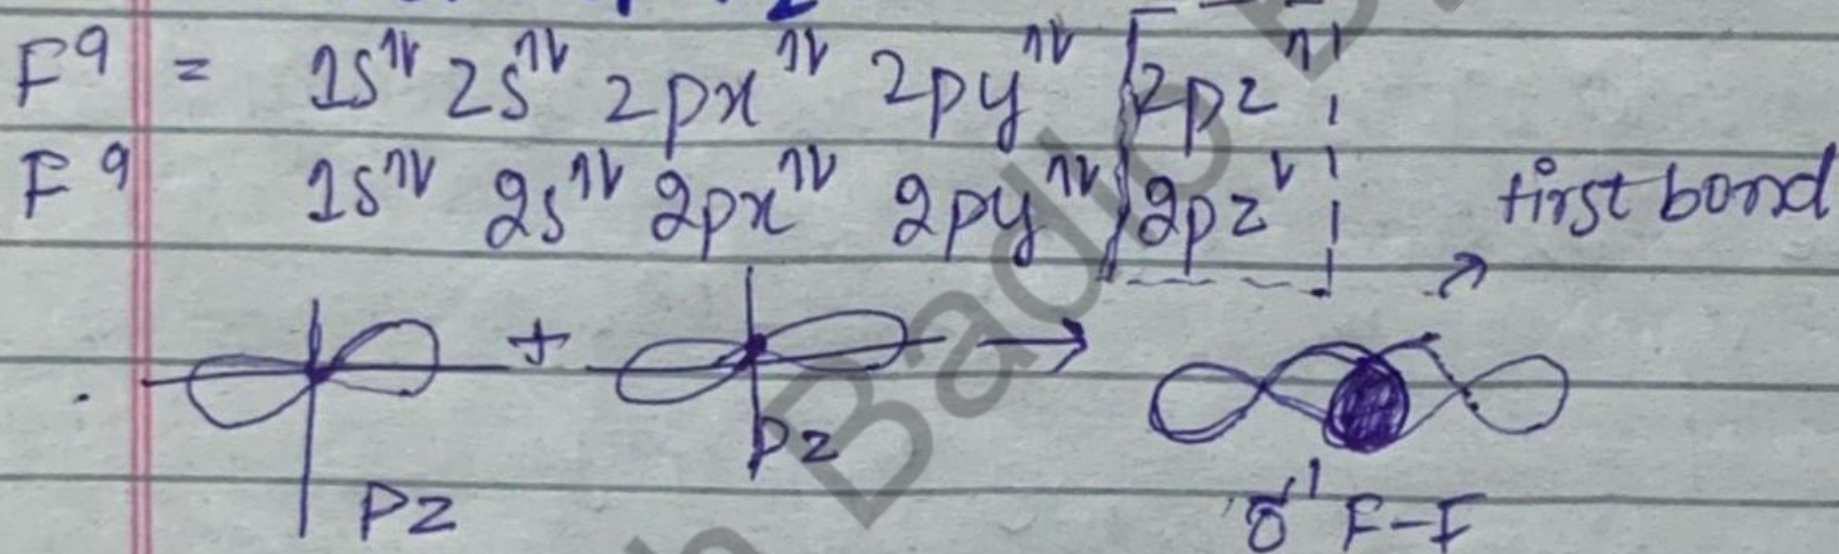 F⁹ = 1s↿⇂ 2s↿⇂ 2px↿⇂ 2py↿⇂ 2pz↿
F⁹ 1s↿⇂ 2s↿⇂ 2px↿⇂ 2py↿⇂ 2pz⇂
first bond
+ →
Pz
Pz
F-F
Badlo